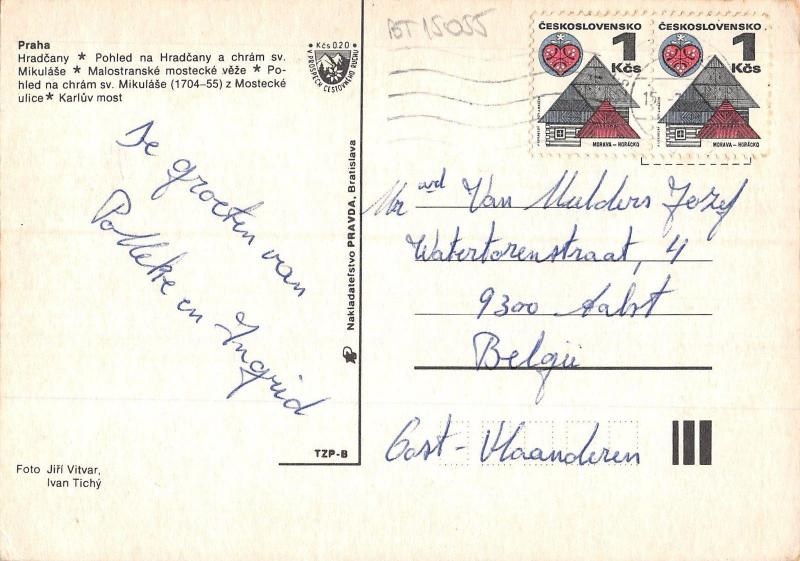 Praha
Hradčany * Pohled na Hradčany a chrám sv.
Mikuláše * Malostranské mostecké věže * Po-
hled na chrám sv. Mikuláše (1704–55) z Mostecké
ulice * Karlův most
Kčs 0,20
V PROSPĚCH CESTOVNÍHO RUCHU
BT 15055
ČESKOSLOVENSKO
1
Kčs
MORAVA – HORÁCKO
ČESKOSLOVENSKO
1
Kčs
MORAVA – HORÁCKO
De groeten van
Polleke en Ingrid
Nakladateľstvo PRAVDA, Bratislava
TZP-B
Van Mulders Jozef
Watertorenstraat, 4
9300 Aalst
België
Oost-Vlaanderen
Foto Jiří Vitvar,
Ivan Tichý